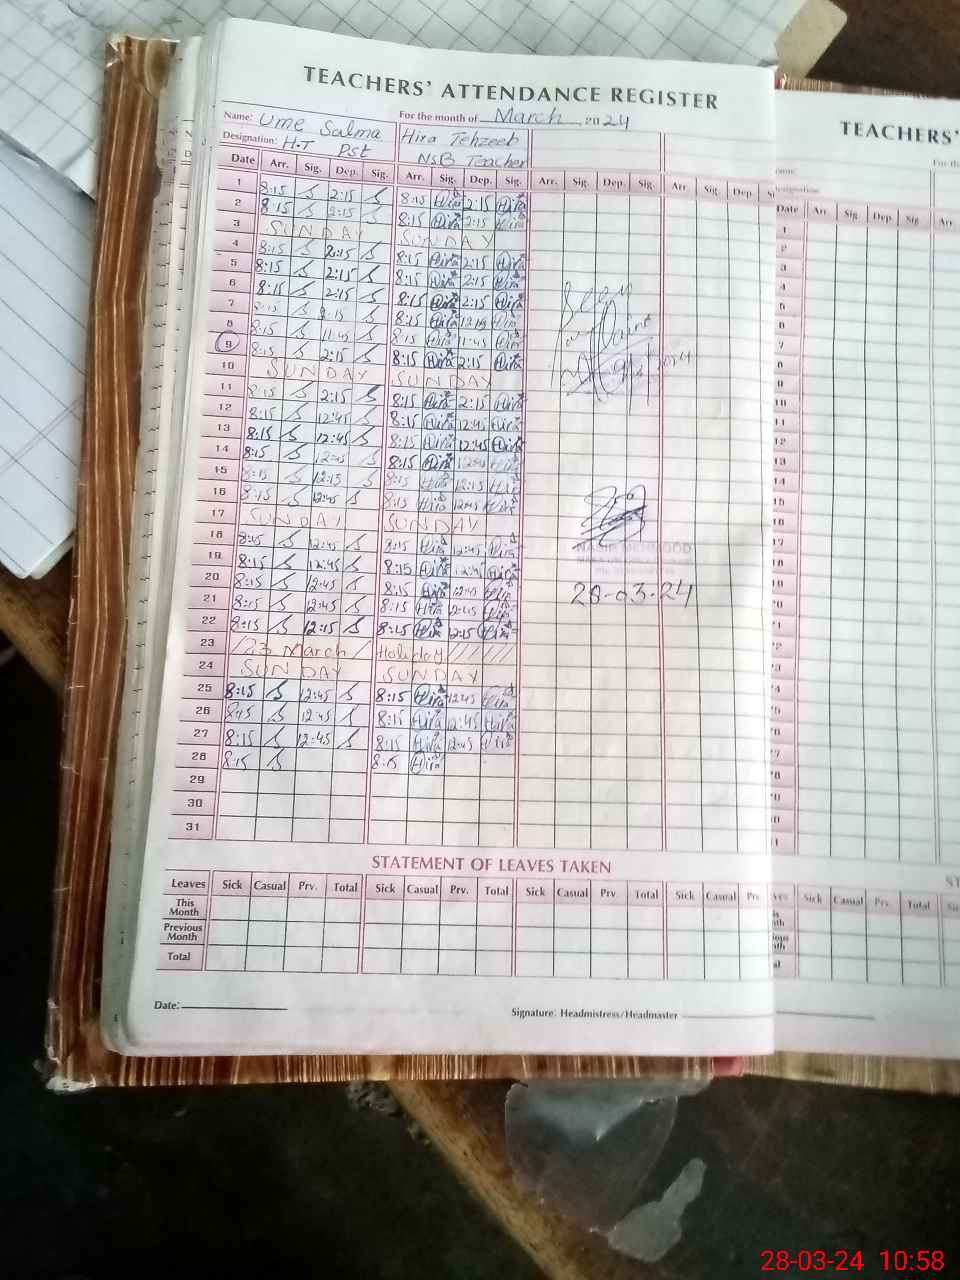 TEACHERS' ATTENDANCE REGISTER
Name: Ume Salma For the month of March 2024
Designation: H.T Pst Hira Tehzeeb
NSB Teacher
Date Arr. Sig. Dep. Sig. Arr. Sig. Dep. Sig. Arr. Sig. Dep. Sig. Arr Sig. Dep. Si
1 8:15 S 2:15 S 8:15 Hira 2:15 Hira
2 8:15 S 2:15 S 8:15 Hira 2:15 Hira
3 SUNDAY SUNDAY
4 8:15 S 2:15 S 8:15 Hira 2:15 Hira
5 8:15 S 2:15 S 8:15 Hira 2:15 Hira
6 8:15 S 2:15 S 8:15 Hira 2:15 Hira
7 8:15 S 2:15 S 8:15 Hira Hira
8 8:15 S 11:45 S 8:15 Hira 11:45 Hira
9 8:15 S 2:15 S 8:15 Hira 2:15 Hira
10 SUNDAY SUNDAY
11 8:15 S 2:15 S 8:15 Hira 2:15 Hira
12 8:15 S 12:45 S 8:15 Hira 12:45 Hira
13 8:15 S 12:45 S 8:15 Hira 12:45 Hira
14 8:15 S 12:45 S 8:15 Hira 12:45 Hira
15 8:15 S 12:15 S 8:15 Hira 12:15 Hira
16 8:15 S 12:45 S 8:15 Hira 12:45 Hira
17 SUNDAY SUNDAY
18 8:15 S 12:45 S 8:15 Hira 12:45 Hira
19 8:15 S 12:45 S 8:15 Hira 12:45 Hira
20 8:15 S 12:45 S 8:15 Hira 12:45 Hira
21 8:15 S 12:45 S 8:15 Hira 12:45 Hira
22 8:15 S 12:15 S 8:15 Hira 12:15 Hira
23 23 March Holiday
24 SUNDAY SUNDAY
25 8:15 S 12:45 S 8:15 Hira 12:45 Hira
26 8:15 S 12:45 S 8:15 Hira 12:45 Hira
27 8:15 S 12:45 S 8:15 Hira 12:45 Hira
28 8:15 S 8:15 Hira
29
30
31
28-03-24
STATEMENT OF LEAVES TAKEN
Leaves Sick Casual Prv. Total Sick Casual Prv. Total Sick Casual Prv. Total Sick Casual Prv
This Month
Previous Month
Total
Date:
Signature: Headmistress/Headmaster
TEACHERS'
Date Arr Sig. Dep. Sig Arr
Sick Casual Prv. Total
28-03-24 10:58